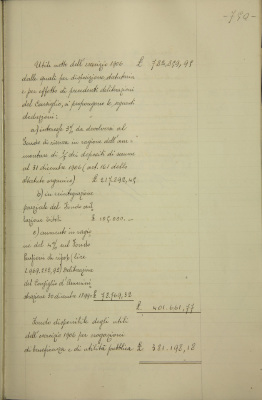 -770-
Utile netto dell'esercizio 1906 £ 782,853,95
dalle quali per disposizione statutaria
e per effetto di precedenti deliberazioni
del Consiglio, si propongono le seguenti
deduzioni:
a) interessi 3% da devolversi al
Fondo di riserva in ragione dell'am=
montare di dei depositi di somme
al 31 dicembre 1906 (art. dello
statuto organico) £ 217,292,45
b) in reintegrazione
parziale del Fondo
£ 105.000.—
c) aumento in ragio
ne del 4% sul Fondo
(lire
Deliberazione
del Consiglio d'Ammini
strazione 30 dicembre £ 78,369,32
£ 401.661,77
Fondo disponibile degli utili
dell'esercizio 1906 per erogazioni
di beneficenza e di utilità pubblica £ 381.192,18